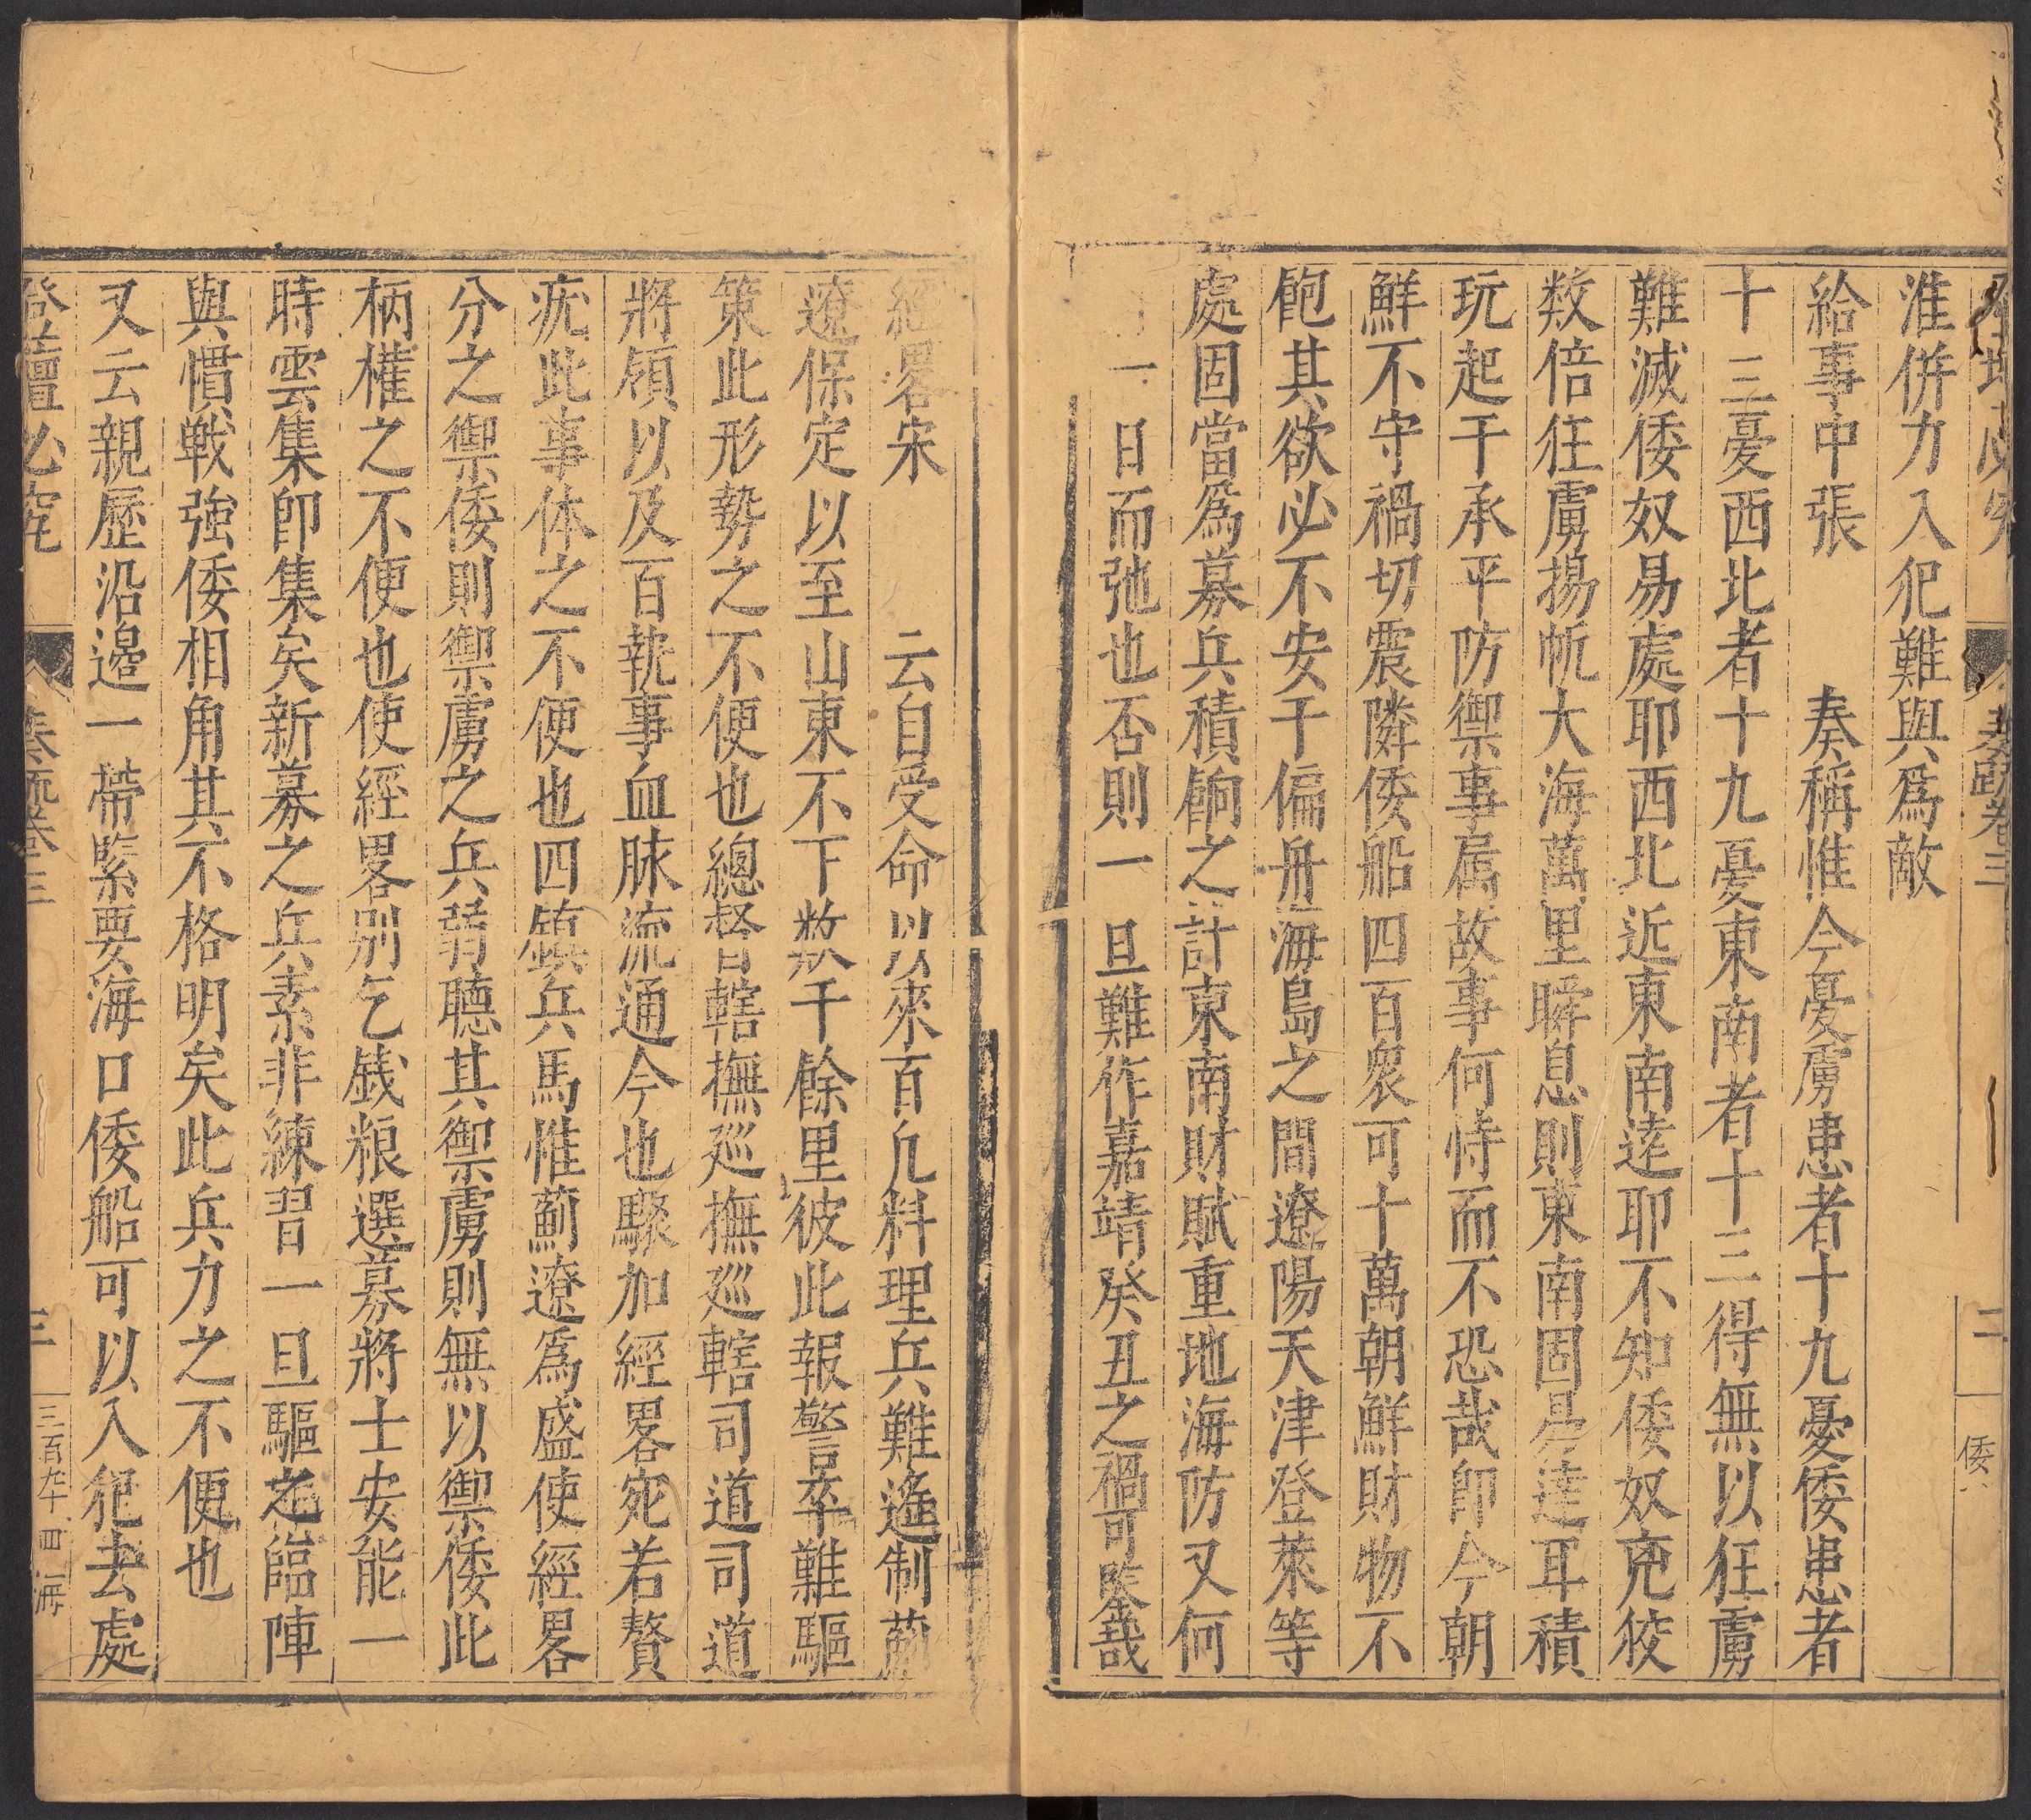 奏疏卷三
二
倭
淮併力入犯難與爲敵
給事中張　奏稱惟今憂虜患者十九憂倭患者
十三憂西北者十九憂東南者十三得無以狂虜
難滅倭奴易處耶西北近東南逺耶不知倭奴兇狡
数倍狂虜揚帆大海萬里瞬息則東南固易達耳積
玩起于承平防禦事属故事何恃而不恐哉卽今朝
鮮不守禍切震隣倭船四百衆可十萬朝鮮財物不
飽其欲必不安于偏舟海島之間遼陽天津登萊等
處固當爲募兵積餉之計東南財賦重地海防又何
一日而弛也否則一旦難作嘉靖癸丑之禍可鍳哉
經畧宋　云自受命以來百凡料理兵難遙制薊
遼保定以至山東不下数千餘里彼此報警卒難驅
策此形勢之不便也總督轄撫廵撫廵轄司道司道
將領以及百執事血脉流通今也驟加經畧宛若贅
疣此事体之不便也四鎮兵馬惟薊遼爲盛使經畧
分之禦倭則禦虜之兵弱聽其禦虜則無以禦倭此
柄權之不便也使經畧别乞錢粮選募將士安能一
時雲集卽集矣新募之兵素非練習一旦驅之臨陣
與慣戰強倭相角其不格明矣此兵力之不便也
又云親歷沿邉一帶緊要海口倭船可以入犯去處
登壇必究
奏疏卷三
三
三百九十四
海